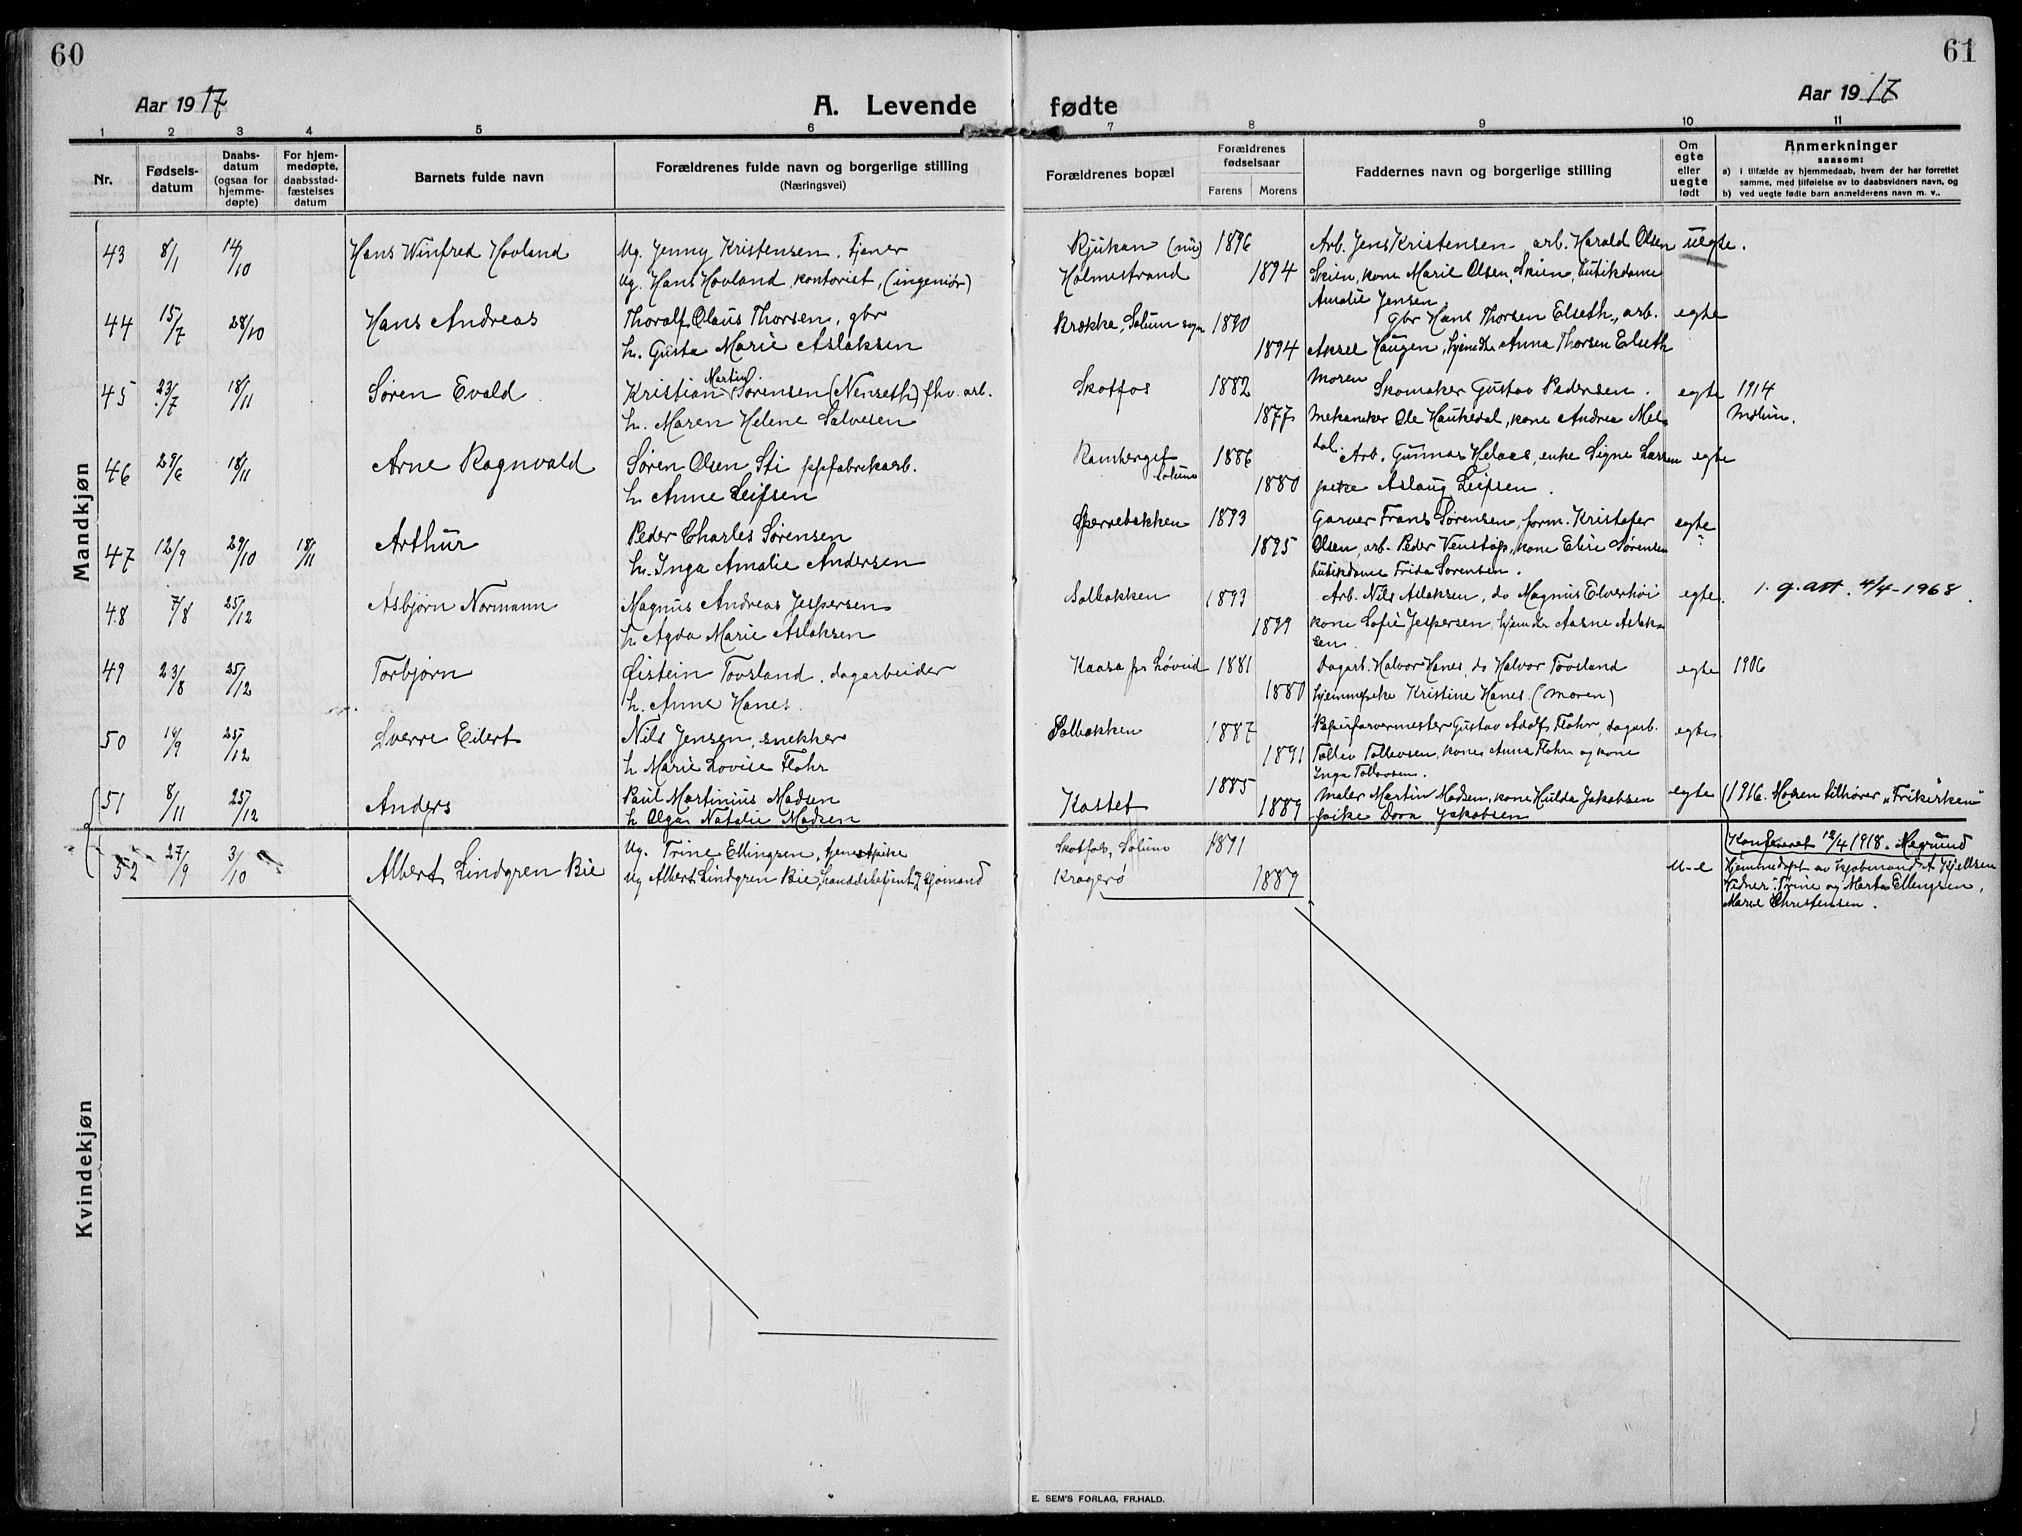 60
61
Aar 1917
A. Levende fødte
Aar 1917
1 2 3 4 5 6 7 8 9 10 11
Nr.
Fødsels-
datum
Daabs-
datum
(ogsaa for
hjemme-
døpte)
For hjem-
medøpte,
daabsstad-
fæstelses
datum
Barnets fulde navn
Forældrenes fulde navn og borgerlige stilling
(Næringsvei)
Forældrenes bopæl
Forældrenes
fødselsaar
Farens Morens
Faddernes navn og borgerlige stilling
Om
egte
eller
uegte
født
Anmerkninger
saasom:
a) i tilfælde av hjemmedaab, hvem der har forrettet
samme, med tilføielse av to daabsvidners navn, og
b) ved uegte fødte barn anmelderens navn m. v..
Mandkjøn
43 8/1 14/10 Hans Winfred Hovland Ug. Jenny Kristensen, tjener Rjukan (nu) 1896 Arb. Jens Kristensen, arb. Harald Olsen uegte.
Ug. Hans Hovland, kontorist, (ingeniør) Holmestrand 1894 Skien, kone Marie Olsen, Skien, butikdame
Amalie Jensen.
44 15/7 28/10 Hans Andreas Thoralf Olaus Thorsen, gbr Krokka, Solum sogn 1890 Gbr Hans Thorsen Elseth, arb. egte
h. Gusta Marie Aslaksen 1894 Aksel Haugen, hjemdtr Anna Thorsen Elseth
moren
45 23/7 18/11 Søren Evald Kristian Martin Sørensen (Nenseth) fhv. arb. Skotfos 1882 Skomaker Gustav Pedersen. egte 1914
h. Maren Helene Salvesen 1877 Mekaniker Ole Haukedal, kone Andrea Mel- Molum.
dal.
46 29/6 18/11 Arne Ragnvald Søren Olsen Sti ppfabrikarb. Ramberget Solum 1886 Arb. Gunnar Helaas, enke Signe Larsen egte
h. Anne Leifsen 1880 pike Aslaug Leifsen.
47 12/9 29/10 18/11 Arthur Peder Charles Sørensen Sperrebakken 1893 Garver Frans Sørensen, form. Kristofer egte
h. Inga Amalie Andersen 1895 Olsen, arb. Peder Venstøp, kone Elise Sørensen
butikdame Frida Sørensen.
48 7/8 25/12 Asbjørn Normann Magnus Andreas Jespersen Solbakken 1893 Arb. Nils Aslaksen, do Magnus Elverhøi egte. 1. g. att. 4/4-1968.
h. Agda Marie Aslaksen 1899 kone Sofie Jespersen, hjemdtr Aasne Aslak-
sen
49 23/8 25/12 Torbjørn Øistein Tovsland, dagarbeider Kaasa pr Løveid 1881 Dagarb. Halvor Hanes, do Halvor Tovsland egte 1906
h. Anne Hanes. 1880 hjemmepike Kristine Hanes. (moren)
50 14/9 25/12 Sverre Eilert Nils Jensen, snekker Solbakken 1887 Papirfarvermester Gustav Adolf Flohr, dagarb. egte
h. Marie Lovise Flohr 1891 Tollev Tollevsen, kone Anna Flohr og kone
Inga Tollevsen.
51 8/11 25/12 Anders Paul Martinius Madsen Kastet 1885 Maler Martin Madsen, kone Hulda Jakobsen egte 1916. Moren tilhører "Frikirken"
h. Olga Natalie Madsen 1889 pike Dora Jakobsen
52 27/9 3/10 Albert Lindgren Bie Ug. Trine Ellingsen, tjenestpike Skotfos, Solum 1891 Konfereret 12/4 1918.Ægrund
Ug Albert Lindgren Bie, handelsbetjent og sjømand Kragerø 1889 u-e Hjemmedøpt av kjøbmand A Kjellsen
Vidner: Trine og Marta Ellingsen,
Marie Christensen.
Kvindekjøn
E. SEM'S FORLAG, FR.HALD.